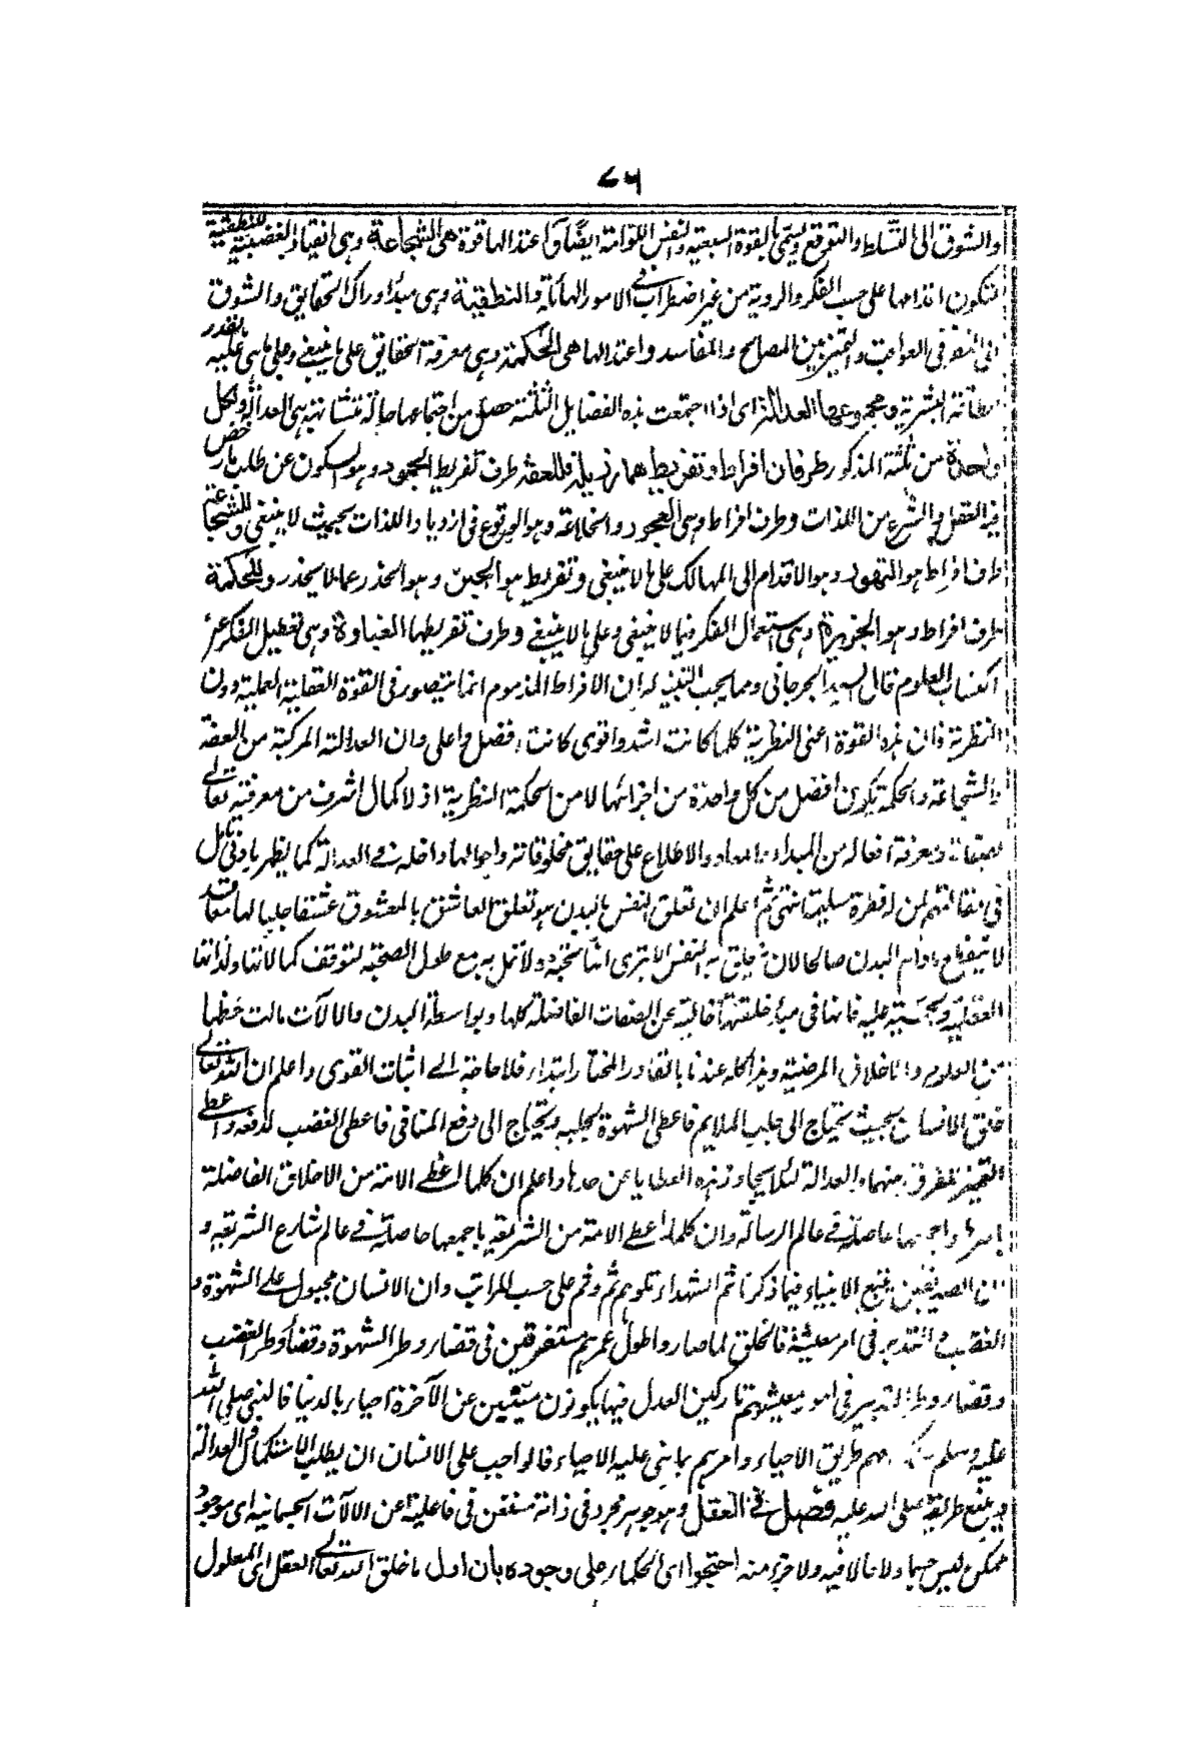 ٧٦
والشوق الى التسلط والترفع ويسمى بالقوة السبعية والنفس اللوامة ايضا و اعتدالها قوة هى الشجاعة وهى انقياد الغضبية للنطقية
فتكون اقدامها على حسب الفكر والروية من غير اضطراب فى الامور الهائلة والنطقية وهى مبدأ ادراك الحقايق والشوق
الى النظر فى العواقب والتميز بين المصالح والمفاسد واعتدالها هى الحكمة وهى معرفة الحقايق على ما ينبغى وعلى ما هى عليه بقدر
الطاقة البشرية ومجموعها العدالة اى اذا اجتمعت هذه الفضايل الثلثة حصل من اجتماعها حالة متشابهة هى العدالة ولكل
واحدة من ثلثة المذكور طرفان افراط وتفريط هما رذيلة فللعفة طرف تفريط الجمود وهو السكون عن طلب ما رخص
فيه العقل والشرع من اللذات وطرف افراط وهى الفجور والخلاعة وهو الوقوع فى ازدياد اللذات بحيث لا ينبغى وللشجاعة
طرف افراط هو التهور وهو الاقدام الى المهالك على ما لا ينبغى وتفريط هو الجبن وهو الحذر عما لا يحذر وللحكمة
طرف افراط وهو الجزبزة وهى استعمال الفكر فيما لا ينبغى وعلى ما لا ينبغى وطرف تفريطها الغباوة وهى تعطيل الفكر عن
اكتساب العلوم قال السيد الجرجانى ومما يجب التنبه له ان الافراط المذموم انما يتصور فى القوة العقلية العملية دون
النظرية فان هذه القوة اعنى النظرية كلما كانت اشد واقوى كانت افضل واعلى وان العدالة المركبة من العفة
والشجاعة والحكمة تكون افضل من كل واحدة من اجزائها لا من الحكمة النظرية اذ لا كمال اشرف من معرفته تعالى
بصفاته ومعرفة افعاله من المبداء والمعاد والاطلاع على حقايق مخلوقاته واحوالها داخلة فى العدالة كما يظهر بادنى تامل
فى مقالتهم لمن له فطرة سليمة انتهى ثم اعلم ان تعلق النفس بالبدن هو تعلق العاشق بالمعشوق عشقا جبليا لها معاقد
لا تنقطع ما دام البدن صالحا لان تعلق به النفس الا يرى انها تحبه ولا تمل به مع طول الصحبة لتوقف كمالاتها ولذاتها
العقلية والحسية عليه فانها فى مبدأ خلقتها خالية عن الصفات الفاضلة كلها وبواسطة البدن والالات نالت حظها
من العلوم والاخلاق المرضية وهذا كله عندنا بالقادر المختار ابتداء فلا حاجة الى اثبات القوى واعلم ان الله تعالى
خلق الانسان بحيث يحتاج الى جلب الملايم فاعطى الشهوة لجلبه ويحتاج الى دفع المنافى فاعطى الغضب لدفعه واعطى
التميز ليفرق بينهما والعدالة لئلا يجاوز هذه العطايا عن حدها واعلم ان كلما اعطى الامة من الاخلاق الفاضلة
باسرها واجمعها حاصلة فى عالم الرسالة وان كلما اعطى الامة من الشريعة باجمعها حاصلة فى عالم شارع الشريعة و
ان الصديقين يتبع الانبياء فيما ذكرنا ثم الشهداء تلوهم ثم وثم على حسب المراتب وان الانسان مجبول على الشهوة و
الغضب والتدبير فى امر معيشة فالخلق لما صاروا طول عمرهم مستغرقين فى قضاء وطر الشهوة وقضاء وطر الغضب
وقضاء وطر التدبير فى امور معيشتهم تاركين العدل فيها يكونون ميتين عن الآخرة احياء بالدنيا فالنبى صلى الله
عليه وسلم بهم طريق الاحياء وامرهم بما بنى عليه الاحياء فالواجب على الانسان ان يطلب الاستكمال والعدالة
ويتبع طريقة صلى الله عليه فصل فى العقل وهو جوهر مجرد فى ذاته مستغن فى فاعليته عن الالات الجسمانية اى موجود
ممكن ليس جسما ولا حالا فيه ولا جزء منه احتجوا اى الحكماء على وجوده بان اول ما خلق الله تعالى العقل اى المعلول